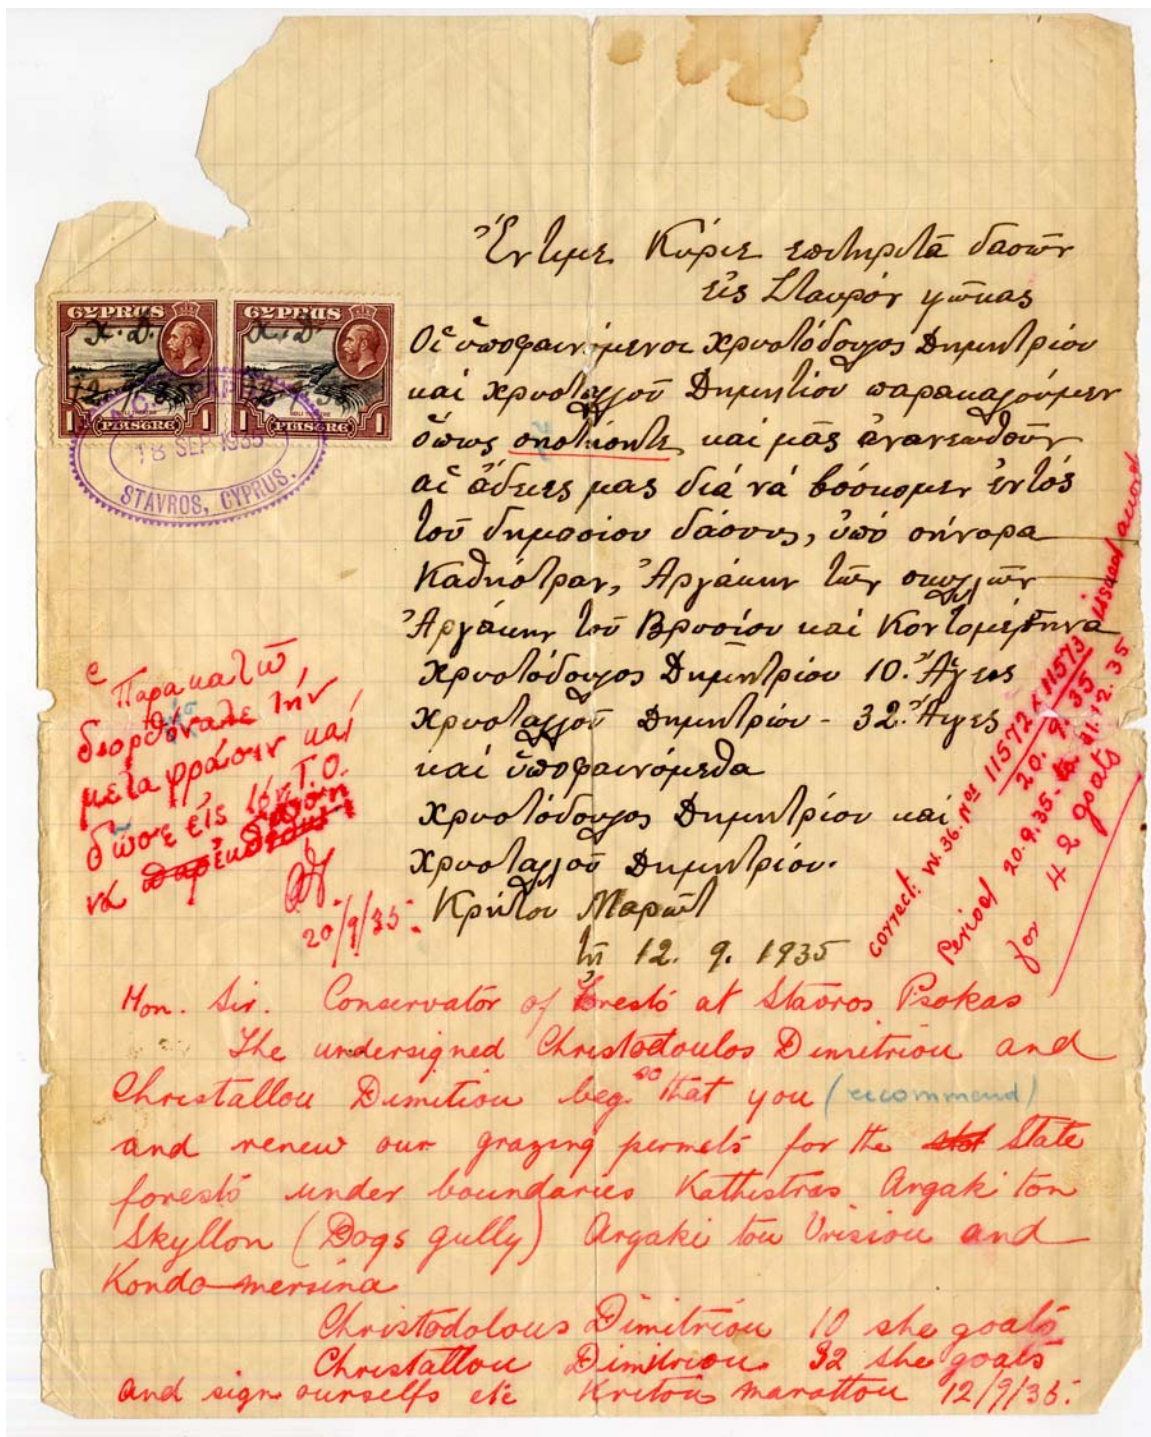 Ἔντιμε Κύριε επιτηριτά δασῶν
εἰς Σταυρόν ψῶκας
Οἱ ὑποφαινόμενοι Χρυστόδουλος Δημητρίου
καί Χρυσταλλοῦ Δημητίου παρακαλούμεν
ὅπως συστίσητε καί μᾶς ἀνανεωθοῦν
αἱ ἄδειες μας διά νά βόσκομεν ἐντός
τοῦ δημοσίου δάσους, ὑπό σήνορα
Καθηότραν, Ἀργάκην τῶν σκυλλῶν
Ἀργάκην τοῦ Βρυσίου καί Κοντομέρσηνα
Χρυστόδουλος Δημητρίου 10. Ἄγες
Χρυσταλλοῦ Δημητρίου - 32. Ἄγες
καί ὑποφαινόμεθα
Χρυστόδουλος Δημητρίου καί
Χρυσταλλοῦ Δημητρίου.
Κρήτου Μαρῶτ
τῆ 12. 9. 1935
CYPRUS
Χ. Δ.
12-9-35
1 PIASTRE 1
CYPRUS
Χ. Δ.
12-9-35
1 PIASTRE 1
18 SEP 1935
STAVROS, CYPRUS.
Παρακαλῶ,
διορθόνατε τήν
μετάφρασιν καί
δῶσε εἰς τόν Τ.Ο.
νά
20/9/35.
correct: W. 36. Nos 11572 & 11573 issued
20. 9. 35
Period 20.9.35 - to 31.12.35
for 42 goats
Hon. Sir. Conservator of Forests at Stavros Psokas
The undersigned Christodoulos Dimitriou and
Christallou Dimitiou beg. so that you (recommend)
and renew our grazing permets for the State
forests under boundaries Kathistras Argaki ton
Skyllon (Dogs gully) Argaki tou Vrisiou and
Kondo-mersina
Christodolous Dimitriou 10 she goats
Christallou Dimitriou 32 she goats
and sign ourselfs etc Kritou marattou 12/9/35.